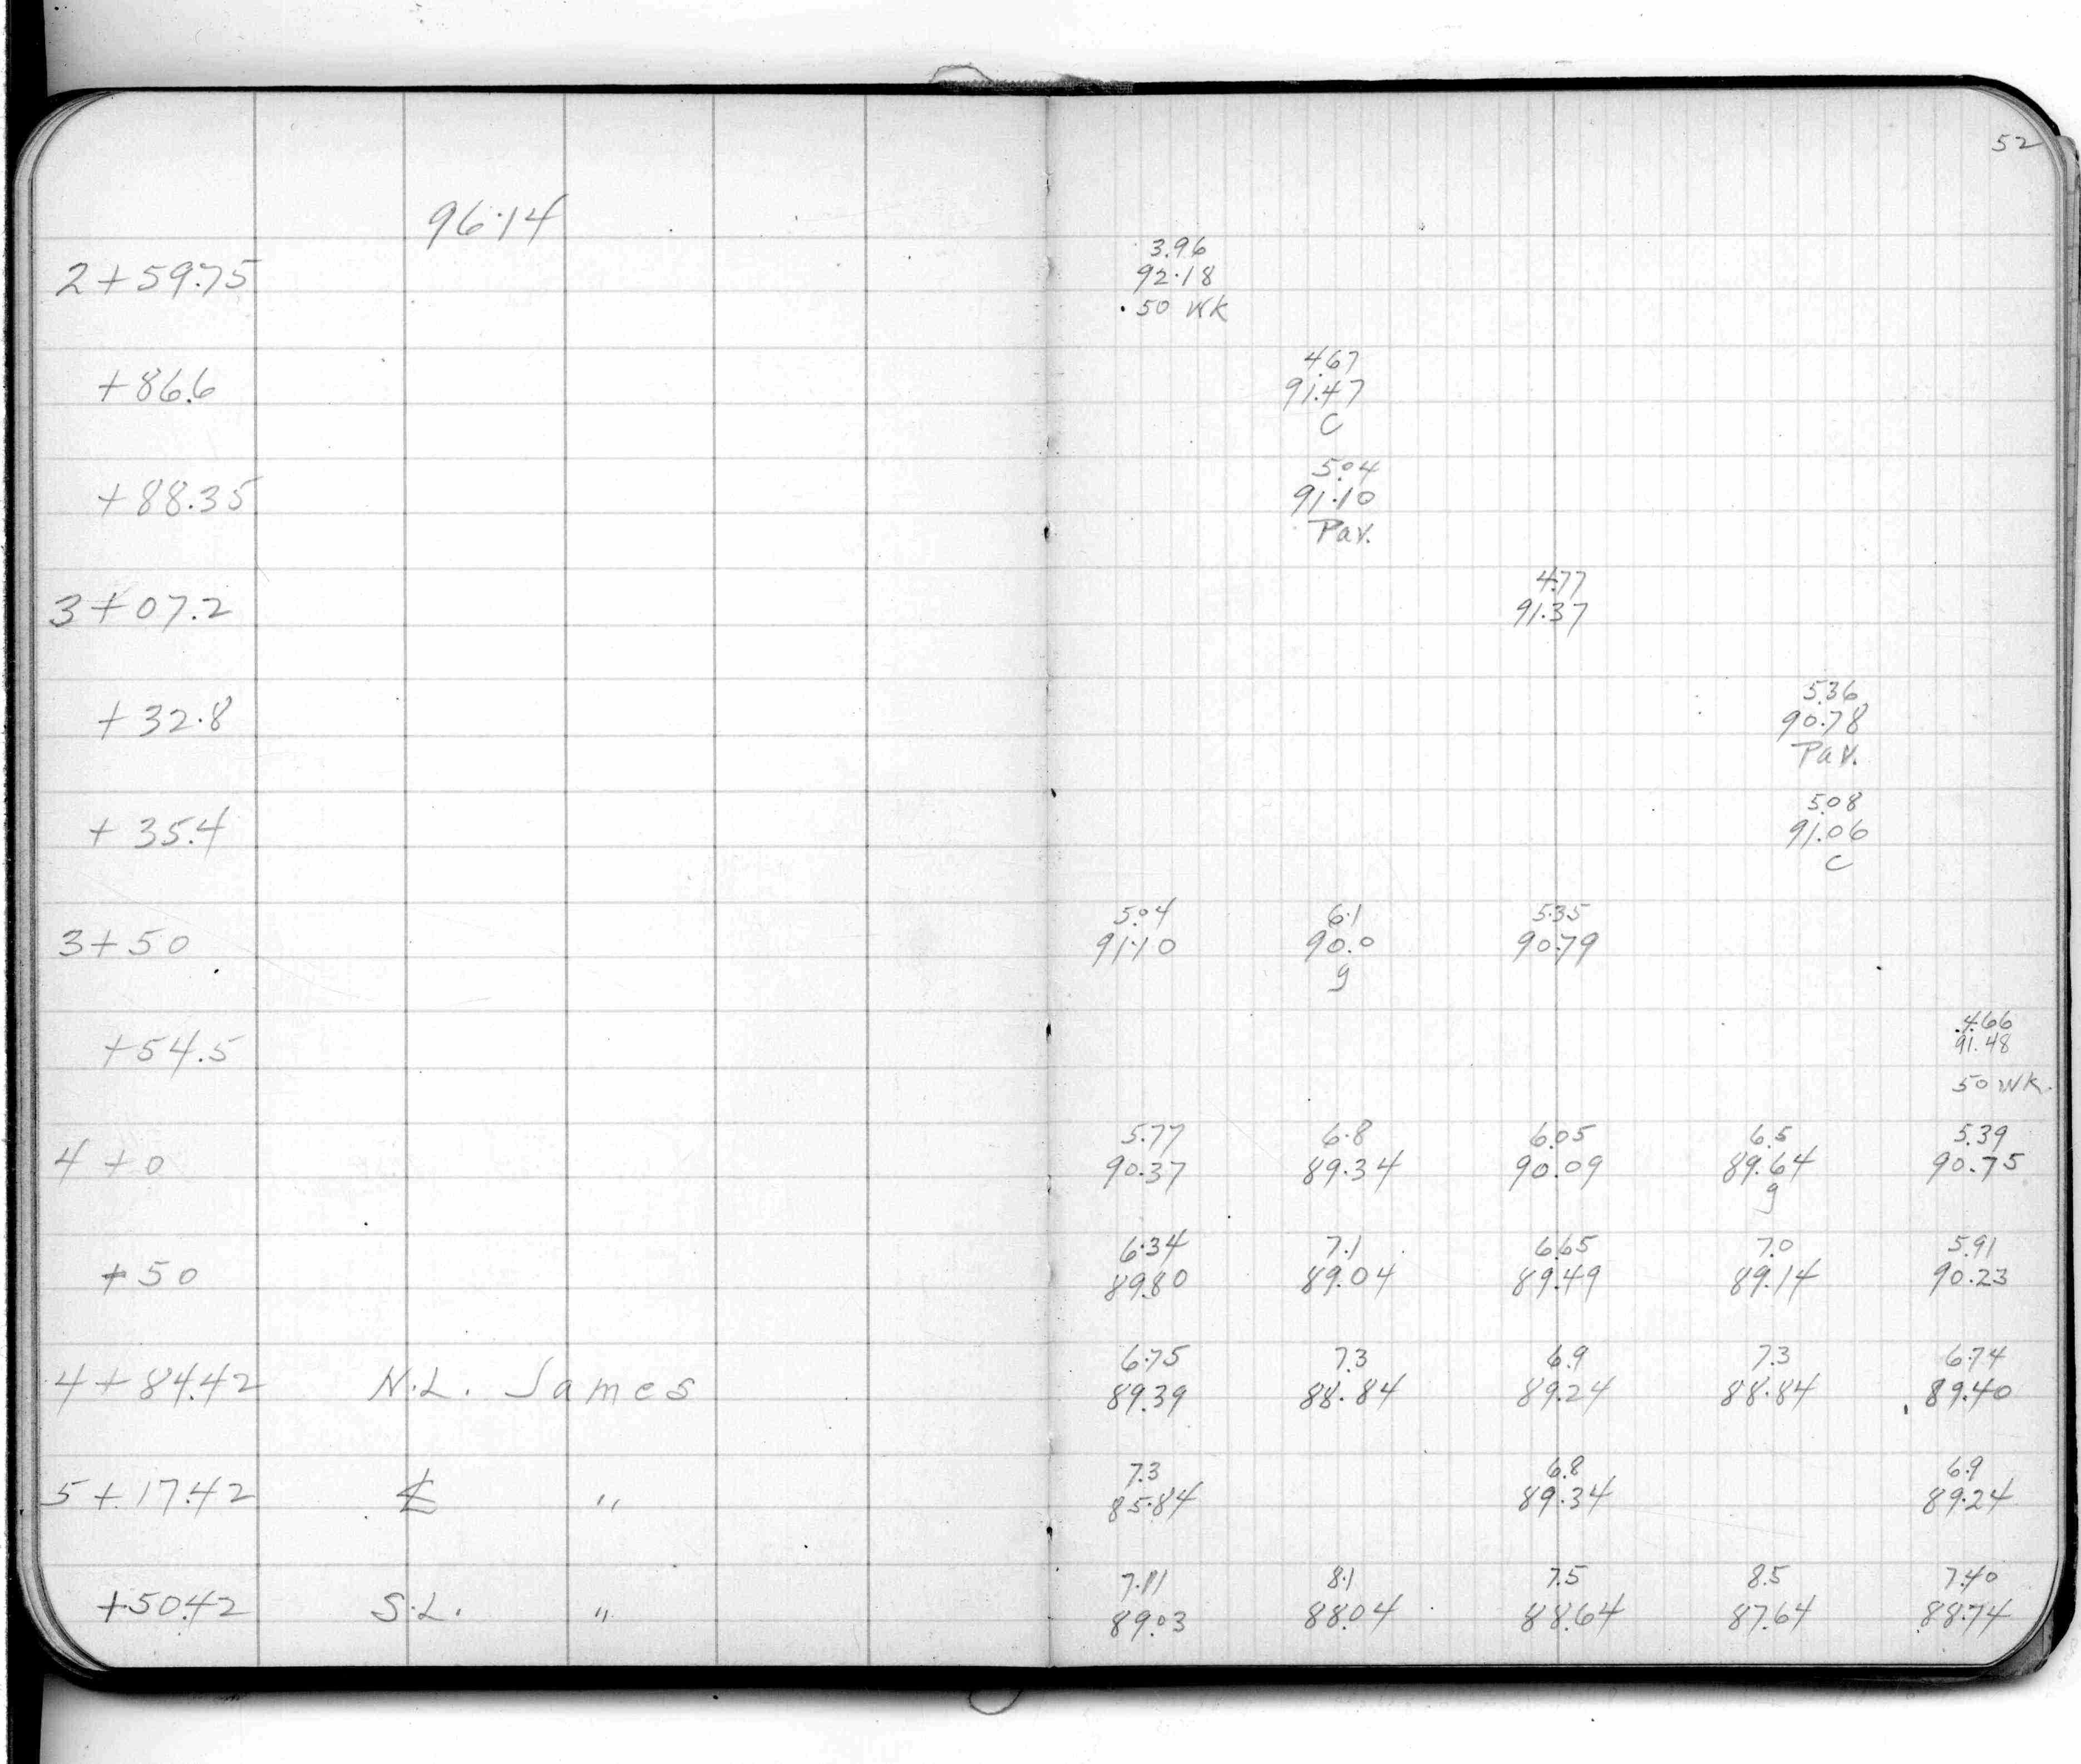 52
96.14
2+59.75
3.96
92.18
.50 Wk
+86.6
4.67
91.47
C
+88.35
5.04
91.10
Pav.
3+07.2
4.77
91.37
+32.8
5.36
90.78
Pav.
+35.4
5.08
91.06
C
5.04 6.1 5.35
3+50 91.10 90.0 90.79
g
+54.5
4.66
91.48
50 Wk.
5.77 6.8 6.05 6.5 5.39
4+0 90.37 89.34 90.09 89.64 90.75
g
6.34 7.1 6.65 7.0 5.91
+50 89.80 89.04 89.49 89.14 90.23
6.75 7.3 6.9 7.3 6.74
4+84.42 N.L. James 89.39 88.84 89.24 88.84 89.40
7.3 6.8 6.9
5+17.42 ℄ " 85.84 89.34 89.24
7.11 8.1 7.5 8.5 7.40
+50.42 S.L. " 89.03 88.04 88.64 87.64 88.74